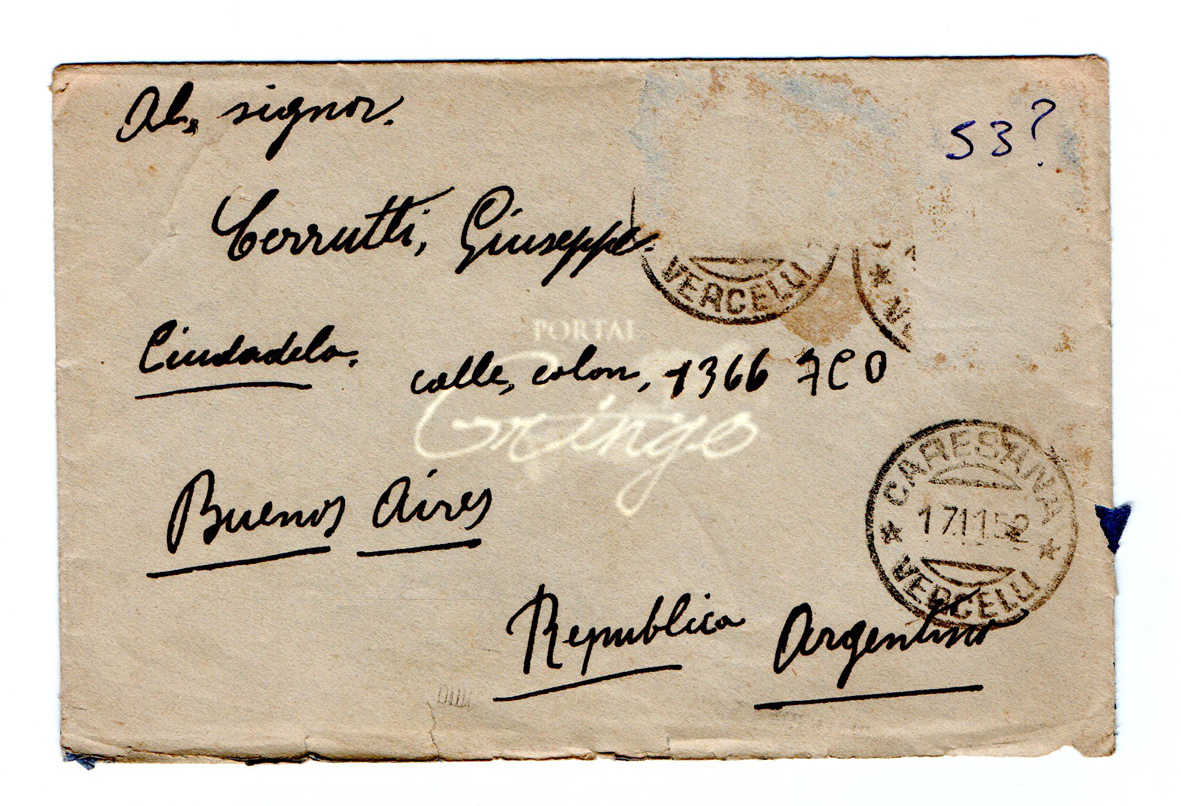 Al, signor.
53?
Cerrutti, Giuseppe.
VERCELLI
Ciudadela.
calle, colon, 1366 7CO
PORTAL
Gringo
Buenos Aires
CARESANA
17.11.52
VERCELLI
Republica Argentina